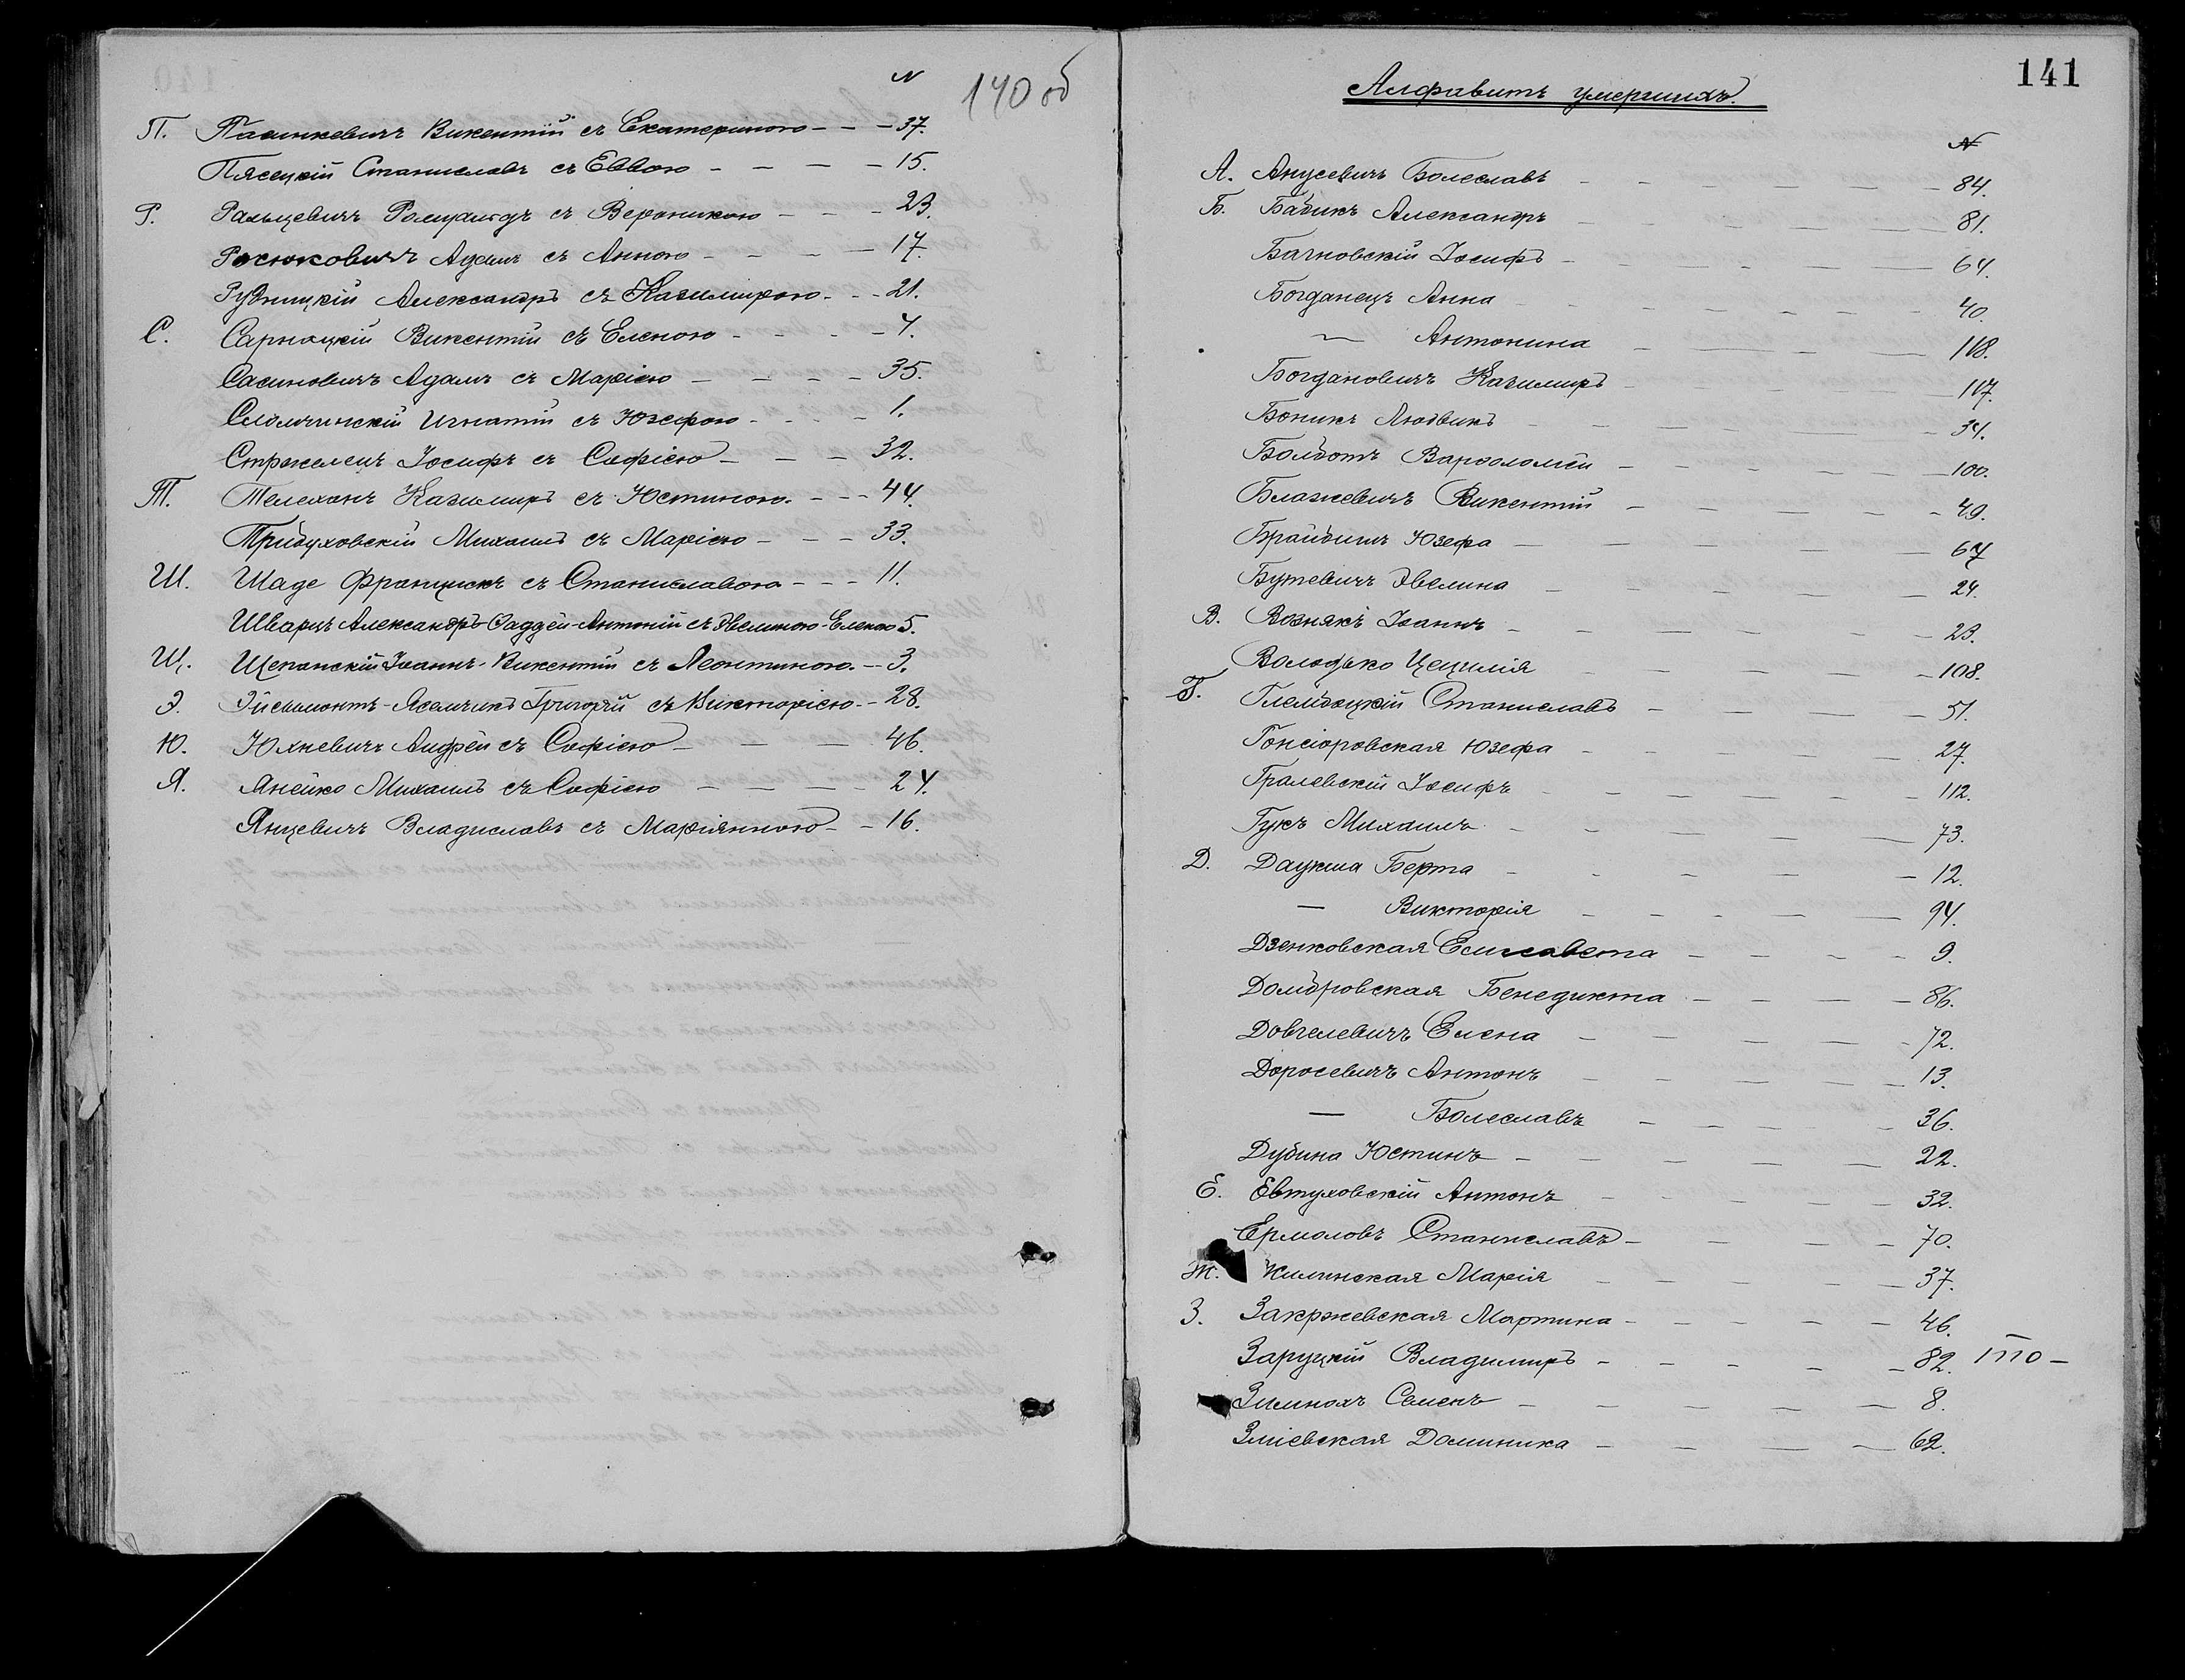 N 140 об
П. Пашкевичъ Викентій съ Екатериною - - - 37.
Пясецкій Станиславъ съ Еввою - - - - 15.
Р. Ральцевичъ Ромуальдъ съ Вероникою - - - 23.
Росюковичъ Адамъ съ Анною - - - - 17.
Рудницкій Александръ съ Казимирою - - - 21.
С. Сарнацкій Викентій съ Еленою - - - - 4.
Сасиновичъ Адамъ съ Маріею - - - - 35.
Сломчинскій Игнатій съ Юзефою - - - 1.
Стржелецъ Іосифъ съ Софіею - - - 32.
Т. Телеханъ Казимиръ съ Юстиною - - - 44.
Трибуховскій Михаилъ съ Маріею - - - 33.
Ш. Шаде Францискъ съ Станиславою - - - 11.
Шварцъ Александръ-Фаддей-Антоній съ Эвелиною-Еленою 5.
Щ. Щепанскій Іоаннъ-Викентій съ Леонтиною. - - 3.
Э. Эйсымонтъ-Яселчикъ Григорій съ Викторіею - - 28.
Ю. Юхневичъ Андрей съ Софіею - - - 46.
Я. Янейко Михаилъ съ Софіею - - - - 24.
Янцевичъ Владиславъ съ Маріянною - - 16.
141
Алфавитъ умершихъ.
N
А. Анусевичъ Болеславъ - - - - - - 84.
Б. Бабикъ Александръ - - - - - 81.
Бачновскій Іосифъ - - - - - - 64.
Богданецъ Анна - - - - - - 40.
— Антонина - - - - 118.
Богдановичъ Казимиръ - - - - - 117.
Боникъ Людвикъ - - - - - 34.
Болботъ Варфоломей - - - - - 100.
Блажевичъ Викентій - - - - - 49.
Брайбишъ Юзефа - - - - - 67
Бутевичъ Эвелина - - - - - 24.
В. Вознякъ Іоаннъ - - - - - 23.
Володько Цецилія - - - - - 108.
Г. Глембоцкій Станиславъ - - - - 51.
Гонсіоровская Юзефа - - - - - 27.
Гралевскій Іосифъ - - - - - - 112.
Гукъ Михаилъ - - - - - 73.
Д. Даукша Берта - - - - - 12.
— Викторія - - - - - 94.
Дзенковская Елисавета - - - - 9.
Домбровская Бенедикта - - - - 86.
Довгелевичъ Елена - - - - - 72.
Доросевичъ Антонъ - - - - - 13.
— Болеславъ - - - - - 36.
Дубина Юстинъ - - - - - 22.
Е. Евтуховскій Антонъ - - - - 32.
Ермоловъ Станиславъ - - - - 70.
Ж. Жилинская Марія - - - - - 37.
З. Закржевская Мартина - - - - - 46.
Заруцкій Владимиръ - - - - - 82.
Зимнохъ Семенъ - - - - - 8.
Зміевская Доминика - - - - 62.